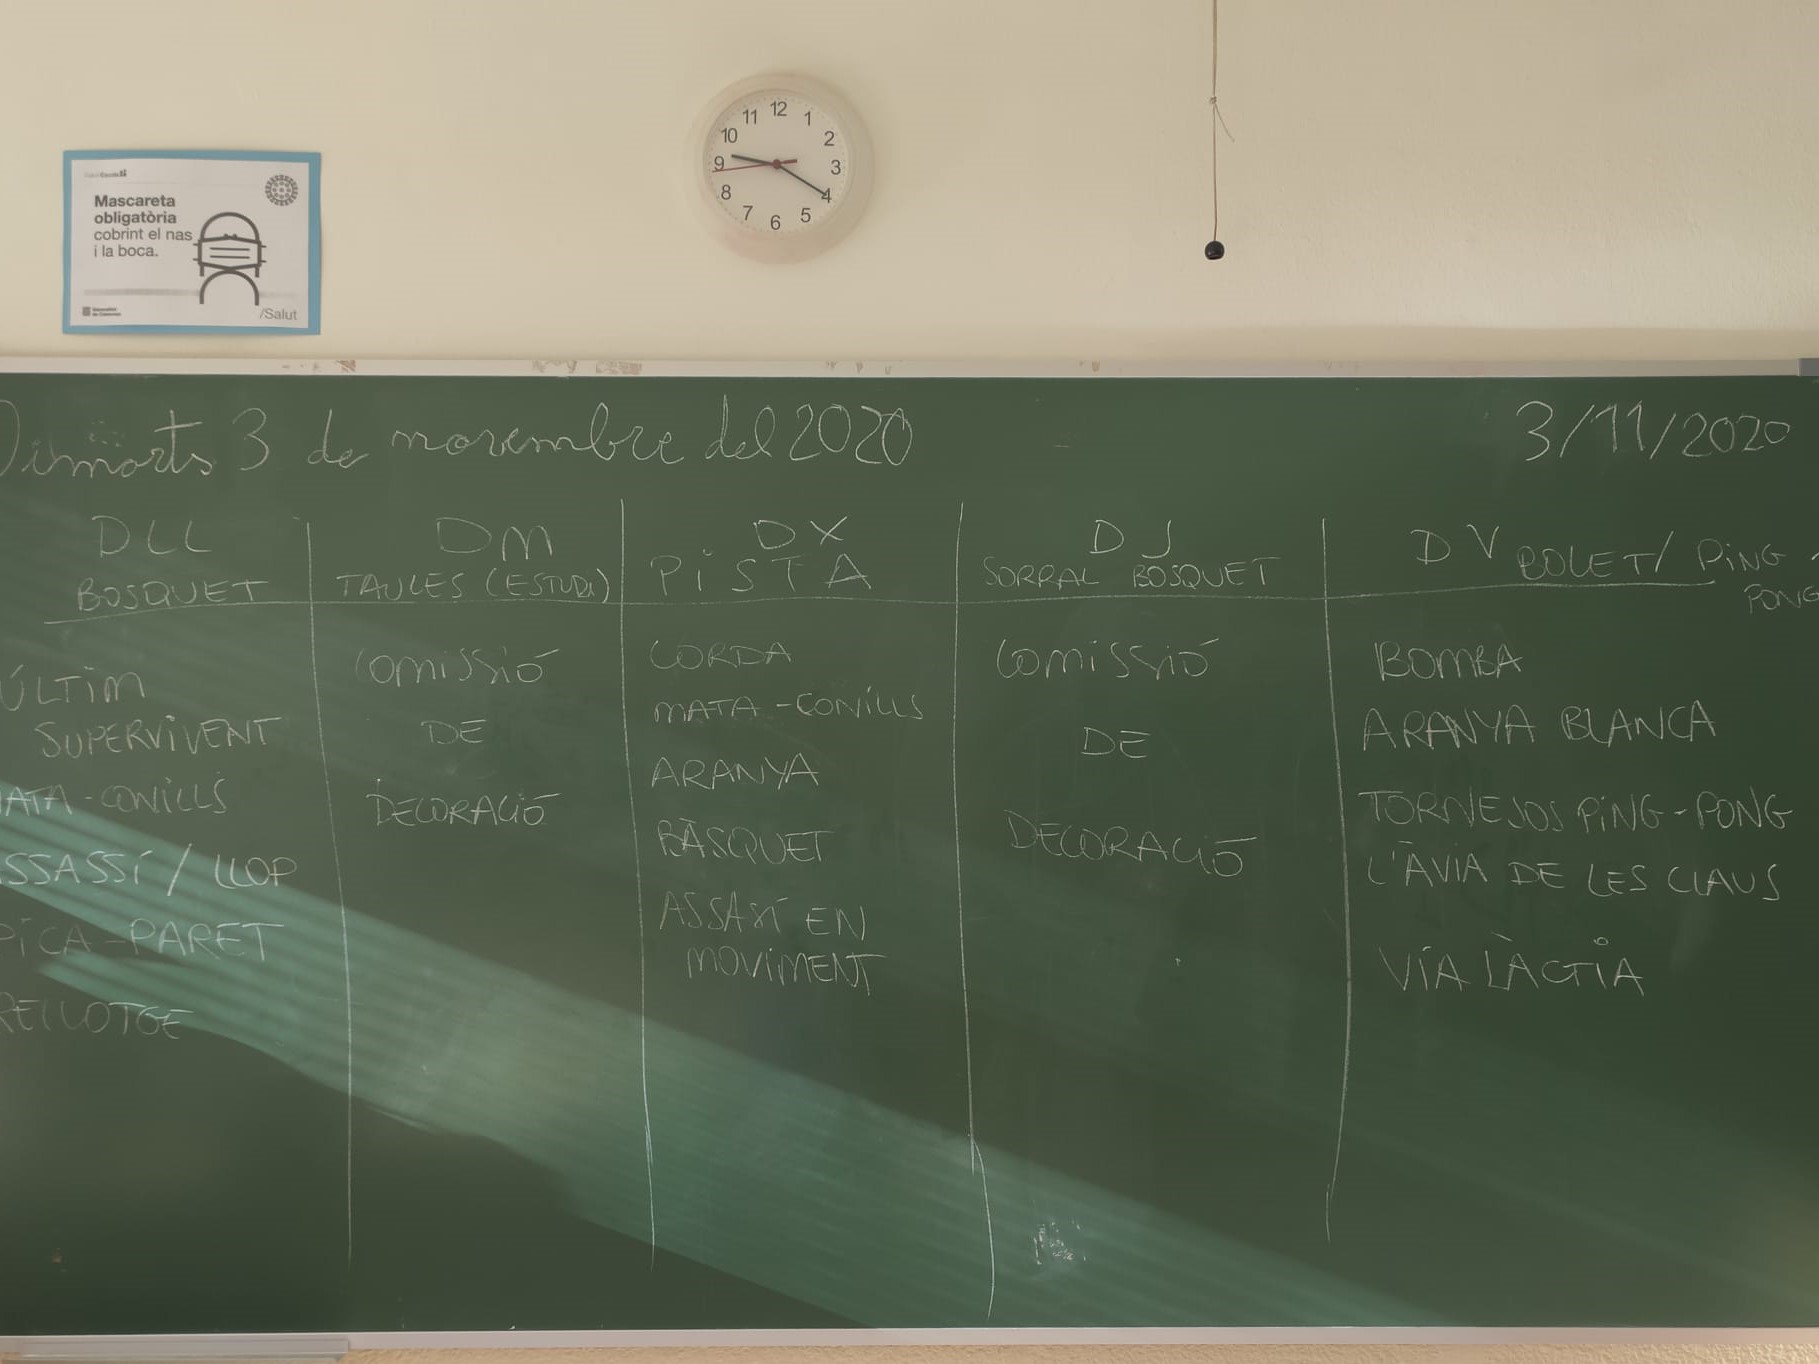 12
11
1
10
2
9
3
8
4
7
5
6
Mascareta
obligatòria
cobrint el nas
i la boca.
/Salut
Dimarts 3 de novembre del 2020
3/11/2020
DLL
BOSQUET
DM
TAULES (ESTUDI)
DX
PISTA
DJ
SORRAL BOSQUET
DV BOLET/ PING-
PONG
ÚLTIM
SUPERVIVENT
MATA-CONILLS
ASSASSÍ / LLOP
PICA-PARET
RELLOTGE
COMISSIÓ
DE
DECORACIÓ
CORDA
MATA-CONILLS
ARANYA
BÀSQUET
ASSASÍ EN
MOVIMENT
COMISSIÓ
DE
DECORACIÓ
BOMBA
ARANYA BLANCA
TORNEJOS PING-PONG
L'ÀVIA DE LES CLAUS
VÍA LÀCTIA